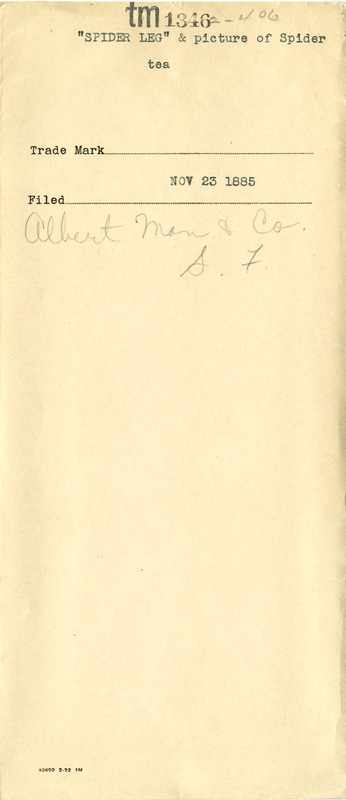 tm 1346 2-406
"SPIDER LEG" & picture of Spider
tea
Trade Mark
NOV 23 1885
Filed
Albert Man & Co.
S. F.
62650 2-32 1M